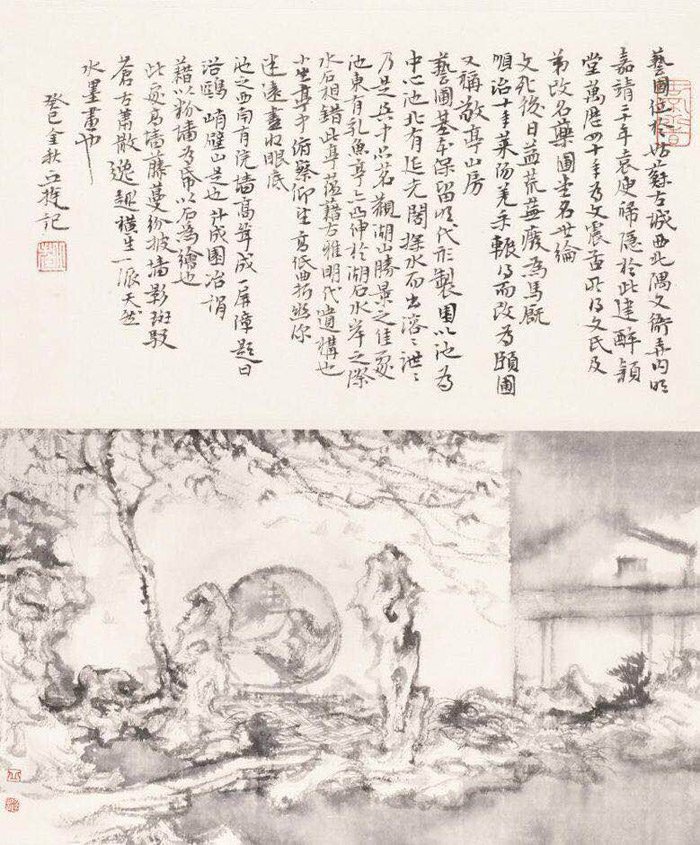 藝圃位於姑蘇古城西北隅文衙弄内明
嘉靖三十年袁庚歸隱於此建醉穎
堂萬曆四十年為文震孟所得文氏及
弟改名藥圃聖名世綸
文死後日益荒蕪廢為馬厩
順治十年萊陽姜采輾得而改為頤圃
又稱敬亭山房
藝圃基本保留明代形製園以池為
中心池北有延光閣探水而出溶溶泄泄
乃是其中品茗觀湖山勝景之佳處
池東有乳魚亭亭凸伸於湖石水岸之際
水石相錯此亭蘊藉古雅明代遺構也
小坐亭中俯察仰生高低曲折悠深
迷遠盡收眼底
池之西南有院墻高聳成一屏障題曰
浴鷗峭壁山是也計成園冶謂
藉以粉墻為紙以石為繪也
此處島墻藤蔓紛披墻影斑駁
蒼古蕭散逸趣橫生一派天然
水墨畫也
癸巳金秋 記